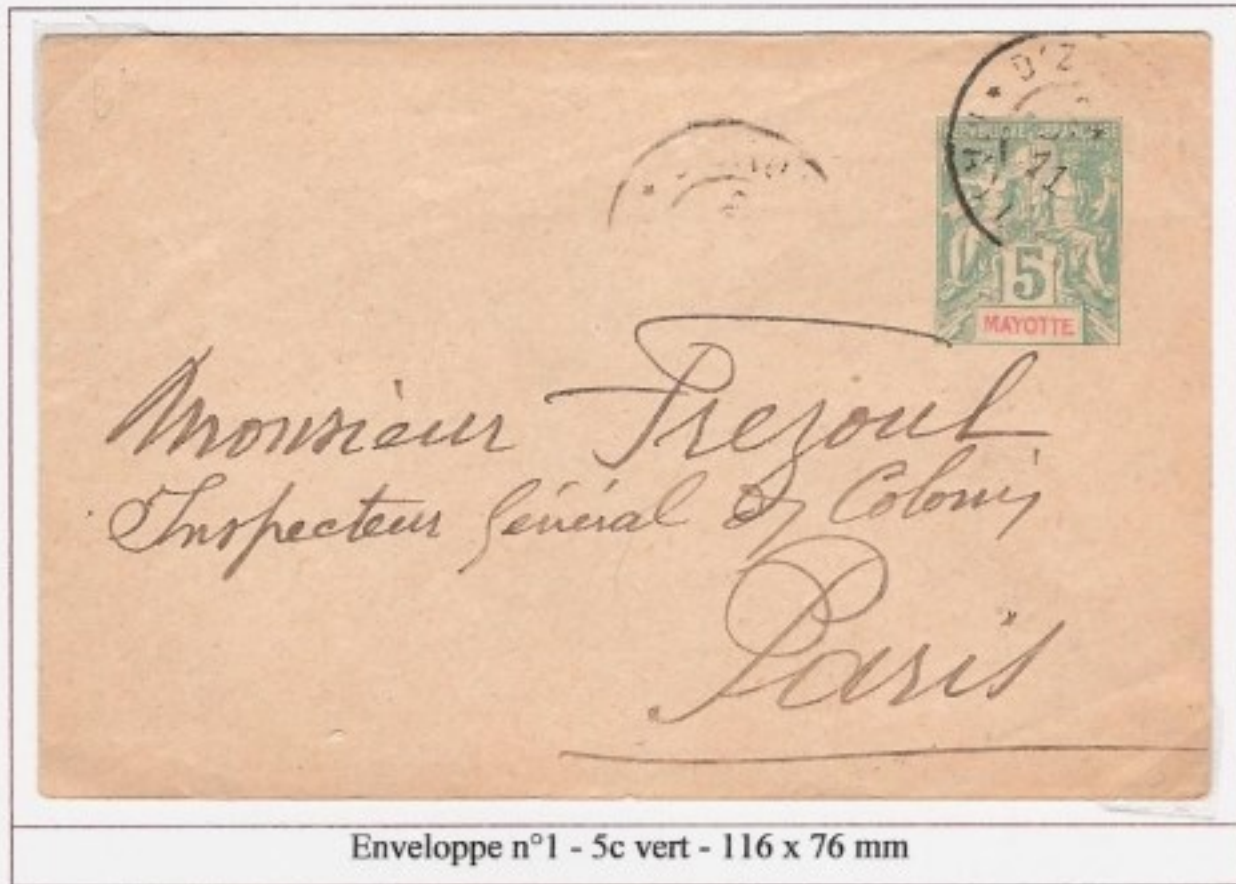 RÉPUBLIQUE FRANÇAISE
5
MAYOTTE
Monsieur
Inspecteur Général des Colonies
Paris
Enveloppe n°1 - 5c vert - 116 x 76 mm